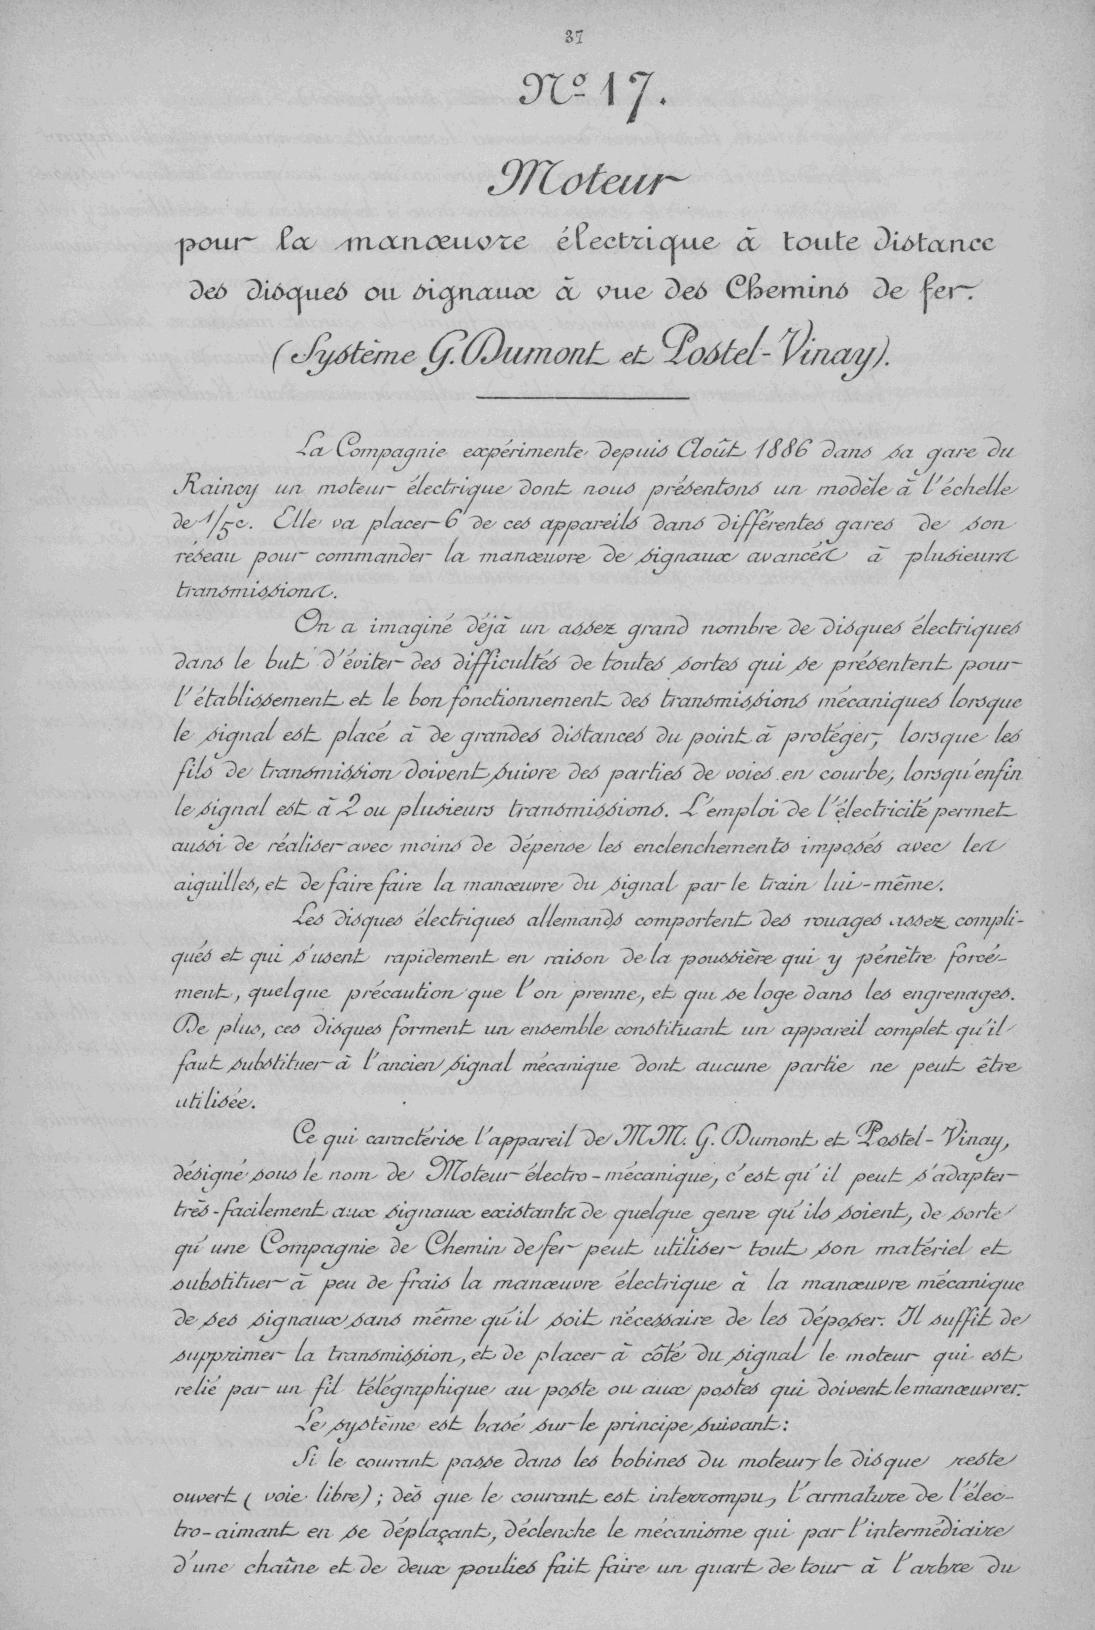 37
Nº 17.
Moteur
pour la manœuvre électrique à toute distance
des disques ou signaux à vue des Chemins de fer.
(Système G. Dumont et Postel-Vinay).
La Compagnie expérimente depuis Août 1886 dans sa gare du
Raincy un moteur électrique dont nous présentons un modèle à l'échelle
de 1/5e. Elle va placer 6 de ces appareils dans différentes gares de son
réseau pour commander la manœuvre de signaux avancés à plusieurs
transmissions.
On a imaginé déjà un assez grand nombre de disques électriques
dans le but d'éviter des difficultés de toutes sortes qui se présentent pour
l'établissement et le bon fonctionnement des transmissions mécaniques lorsque
le signal est placé à de grandes distances du point à protéger, lorsque les
fils de transmission doivent suivre des parties de voies en courbe, lorsqu'enfin
le signal est à 2 ou plusieurs transmissions. L'emploi de l'électricité permet
aussi de réaliser avec moins de dépense les enclenchements imposés avec les
aiguilles, et de faire faire la manœuvre du signal par le train lui-même.
Les disques électriques allemands comportent des rouages assez compli-
qués et qui s'usent rapidement en raison de la poussière qui y pénètre forcé-
ment, quelque précaution que l'on prenne, et qui se loge dans les engrenages.
De plus, ces disques forment un ensemble constituant un appareil complet qu'il
faut substituer à l'ancien signal mécanique dont aucune partie ne peut être
utilisée.
Ce qui caractérise l'appareil de MM. G. Dumont et Postel-Vinay,
désigné sous le nom de Moteur électro-mécanique, c'est qu'il peut s'adapter
très-facilement aux signaux existants de quelque genre qu'ils soient, de sorte
qu'une Compagnie de Chemin de fer peut utiliser tout son matériel et
substituer à peu de frais la manœuvre électrique à la manœuvre mécanique
de ses signaux sans même qu'il soit nécessaire de les déposer. Il suffit de
supprimer la transmission, et de placer à côté du signal le moteur qui est
relié par un fil télégraphique au poste ou aux postes qui doivent le manœuvrer.
Le système est basé sur le principe suivant :
Si le courant passe dans les bobines du moteur, le disque reste
ouvert (voie libre) ; dès que le courant est interrompu, l'armature de l'élec-
tro-aimant en se déplaçant, déclenche le mécanisme qui par l'intermédiaire
d'une chaîne et de deux poulies fait faire un quart de tour à l'arbre du